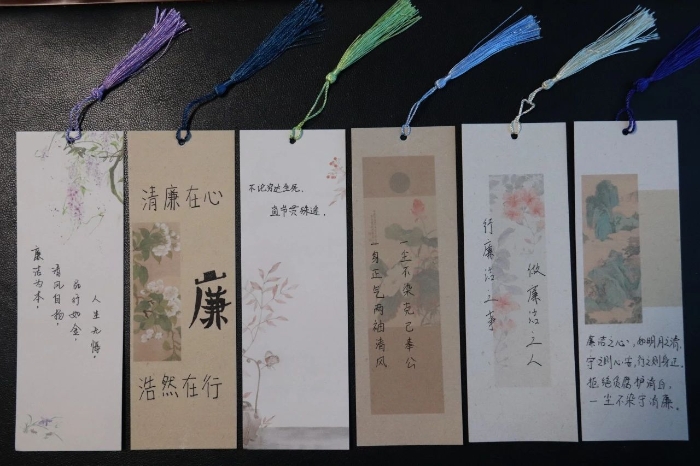 廉洁为本,
清风自扬,
品行如金,
人生无悔。
清廉在心
廉
浩然在行
不论穷达生死,
直节贯殊途。
一尘不染克己奉公
一身正气两袖清风
做廉洁之人
行廉洁之事
廉洁之心,如明月之清,
守之则心安,行之则身正。
拒绝贪腐护清
一尘不染守清廉。